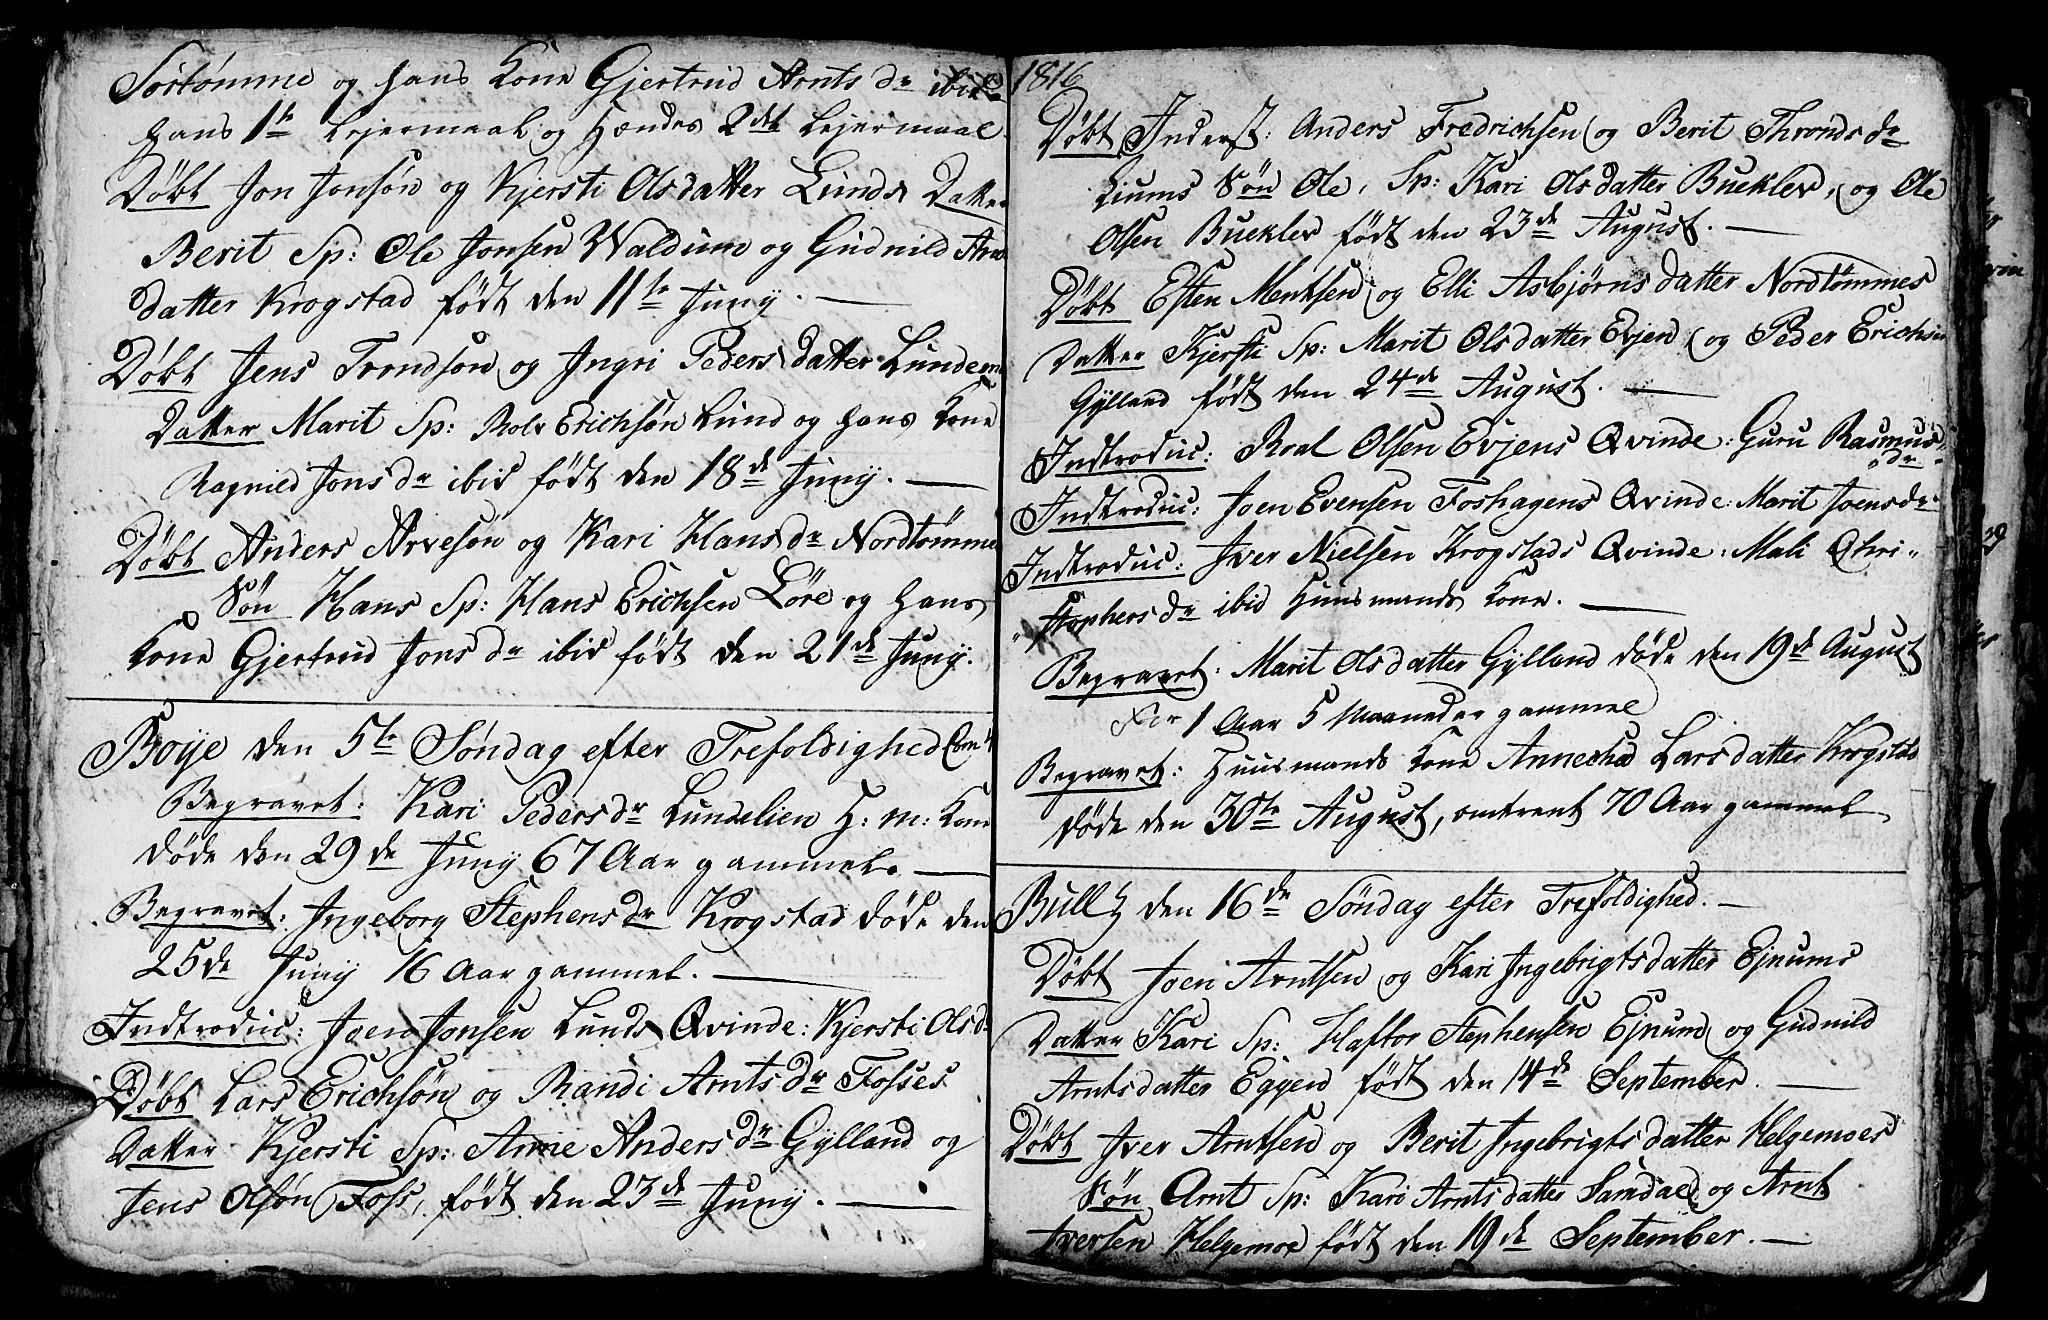 Sørtømme og hans Kone Gjertrud Arnts dr ibid.
hans 1te Lejermaal og Hendes 2det Lejermaal
Døbt Jon Jonsøn og Kjersti Olsdatter Lunds Datter
Berit Sp: Ole Jonsen Waldum og Gudnild Arnts
datter Krogstad født den 11te Junij. —
Døbt Jens Trondsøn og Ingri Peders datter
Datter Marit Sp: Rolv Erichsøn Lund og hans Kone
Ragnild Jons dr ibid født den 18de Junij. —
Døbt Anders Arvesøn og Kari Hans dr Nordtømme
Søn Hans Sp: Hans Erichsen Løre og hans
Kone Gjertrud Jons dr ibid født den 21de Junij.
Boije den 5te Søndag efter Trefoldighed
Begravet: Kari Peders dr Lundelien H: m: Kone
døde den 29de Junij 67 Aar gammel. —
Begravet: Ingeborg Stephens dr Krogstad døde den
25de Junij 16 Aar gammel. —
Indtroduc: Joen Jonsen Lunds Qvinde: Kjersti Olsd
Døbt Lars Erichsøn og Randi Arnts dr Fosses
Datter Kjersti Sp: Anne Anders dr Gylland og
Jens Olsøn Foss, født den 23de Junij. —
1816
Døbt Inderst: Anders Fredrichsen og Berit Thronds dr
Liums Søn Ole, Sp: Kari Olsdatter Bueklev, og Ole
Olsen Bueklev født den 23de August. —
Døbt Esten Mentsen og Elli Asbjørns datter Nordtømmes
Datter Kjersti Sp: Marit Olsdatter Evjen og Peder Erichsen
Gylland født den 24de August. —
Indtroduc: Roal Olsen Evjens Qvinde: Guru Rasmus
dr.
Indtroduc: Joen Evensen Foshagens Qvinde: Marit Joensdr.
Indtroduc: Iver Nielsen Krogstads Qvinde: Mali Chri"
"stophers dr ibid Huusmands Kone. —
Begravet: Marit Olsdatter Gylland døde den 19de August
1 Aar 5 Maaneder gammel
Begravet: Huusmands Kone Annechæ Larsdatter Krogstad
døde den 30te August, omtrent 70 Aar gammel.
Bull den 16de Søndag efter Trefoldighed. —
Døbt Joen Arntsen og Kari Ingebrigtsdatter Ejnums
Datter Kari Sp: Haftor Stephensen Ejnum og Gudnild
Arntsdatter Eggen født den 14de September. —
Døbt Iver Arntsen og Berit Ingebrigts datter Helgemoes
Søn Arnt Sp: Kari Arntsdatter Samdael og Arnt
Iversen Helgemoe født den 19de September. —